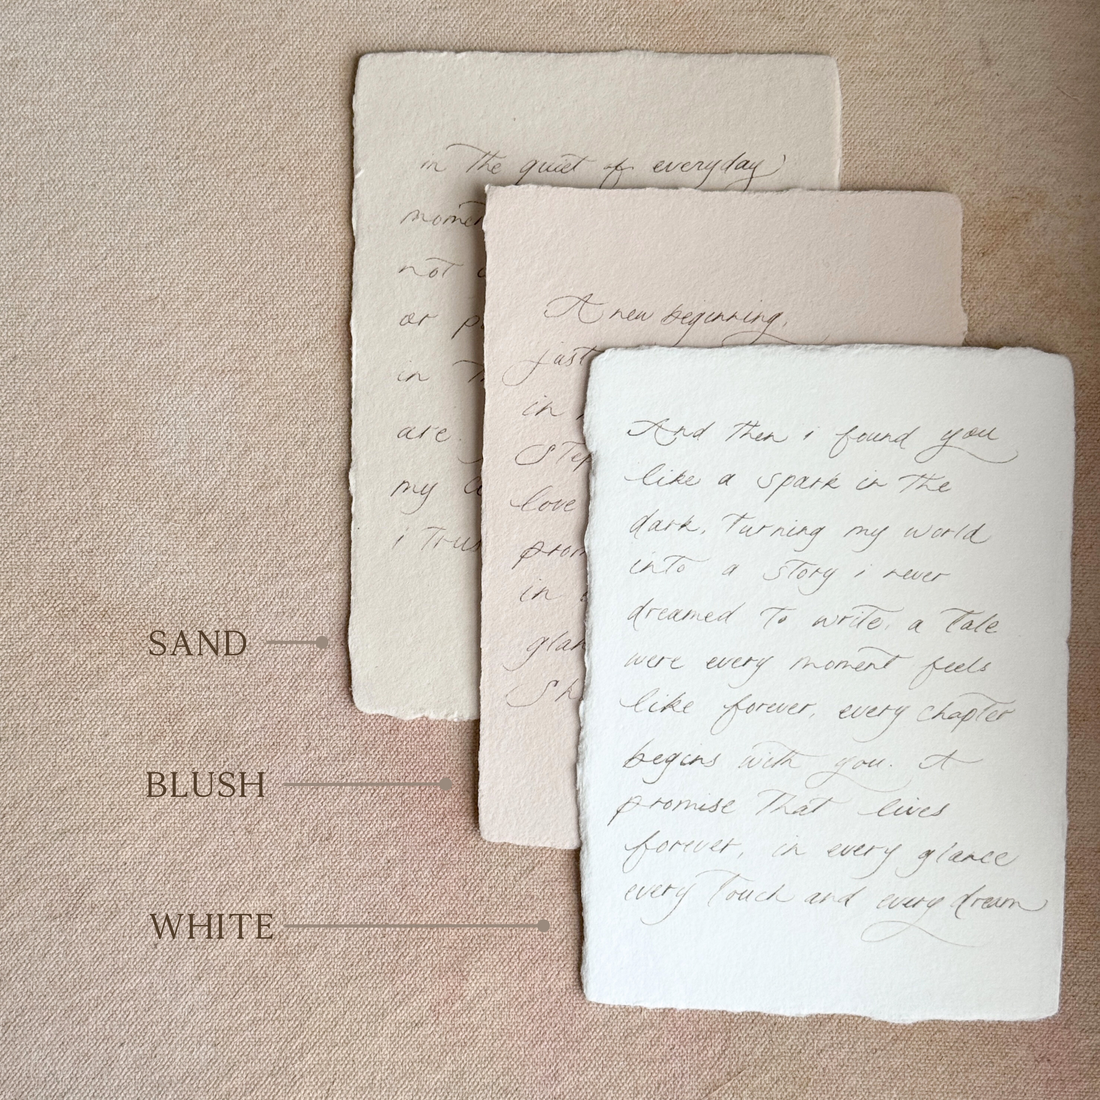 in The quiet of everyday
not
or
in
are.
my
i
A new beginning,
just
in
love
in
And then i found you
like a spark in The
dark, Turning my world
into a story i never
dreamed To write. a Tale
were every moment feels
like forever, every chapter
begins with you. A
promise That lives
forever, in every glance
every Touch and every dream
SAND
BLUSH
WHITE